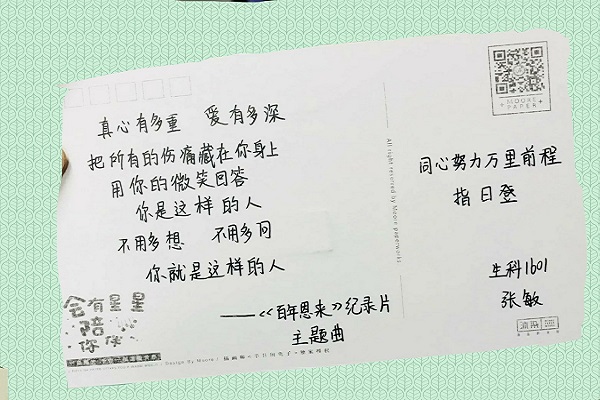 真心有多重 爱有多深
把所有的伤痛藏在你身上
用你的微笑回答
你是这样的人
不用多想 不用多问
你就是这样的人
——《百年恩来》纪录片
主题曲
会有星星
陪
你伴
All right reserved by Moore paperworks
MOORE
PAPER
同心努力万里前程
指日登
生科1601
张敏